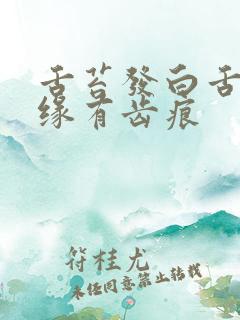 舌苔發白舌
缘有齿痕
符桂尤
未经同意禁止转载